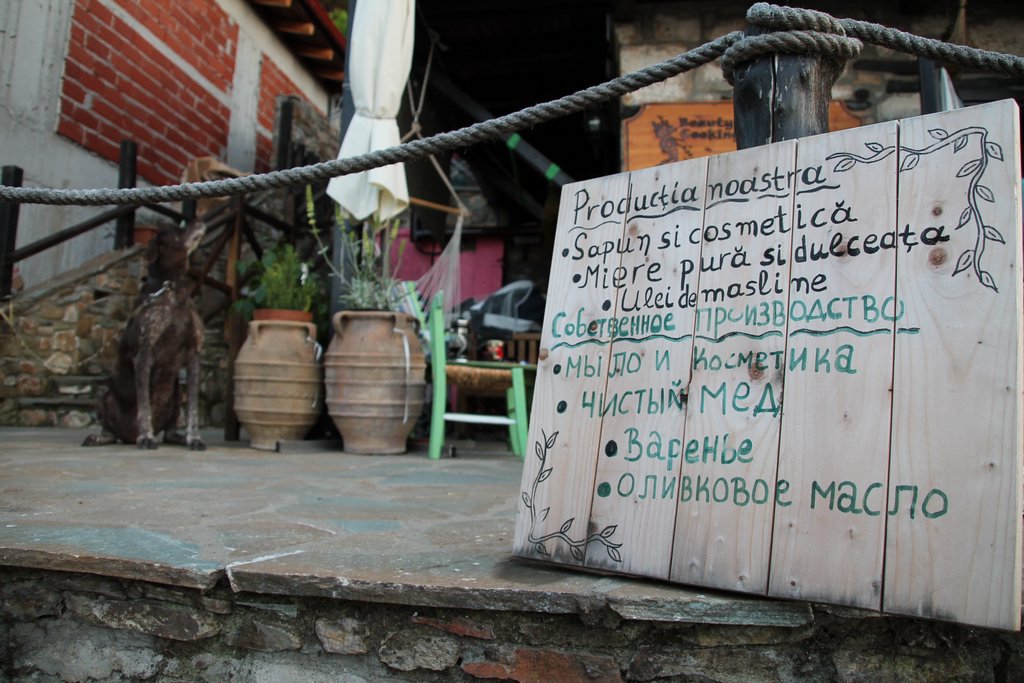 Beauty
Cooking
Producția noastra
•Sapun si cosmetică
•Miere pură si dulceața
•Ulei de masline
Собственное производство
•мыло и косметика
•чистый мед
•Варенье
•оливковое масло